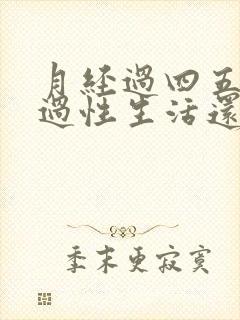 月經過四五
過性生活還
季末更寂寞